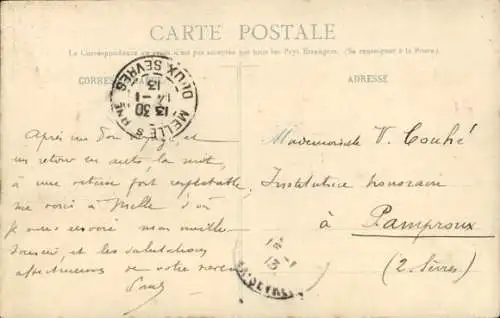 CARTE POSTALE
La Correspondance au recto n'est pas acceptée par tous les Pays Etrangers. (Se renseigner à la Poste).
CORRES
ADRESSE
MELLE S RNE
13 30
14 - 1
13
DEUX SEVRES
Après un bon voyage, et
un retour en auto, la nuit,
à une vitesse fort respectable,
me voici à Melle d'où
je vous envoie mon meilleur
souvenir, et les salutations
affectueuses de votre neveu
Paul
Mademoiselle V. Couhé
Institutrice honoraire
à Pamproux
(2 Sèvres)
14 - 1
13
SEVRES